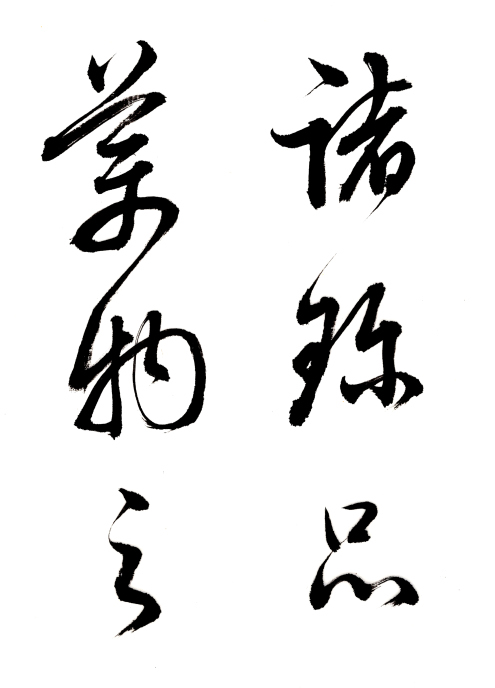 諸品
萬物之